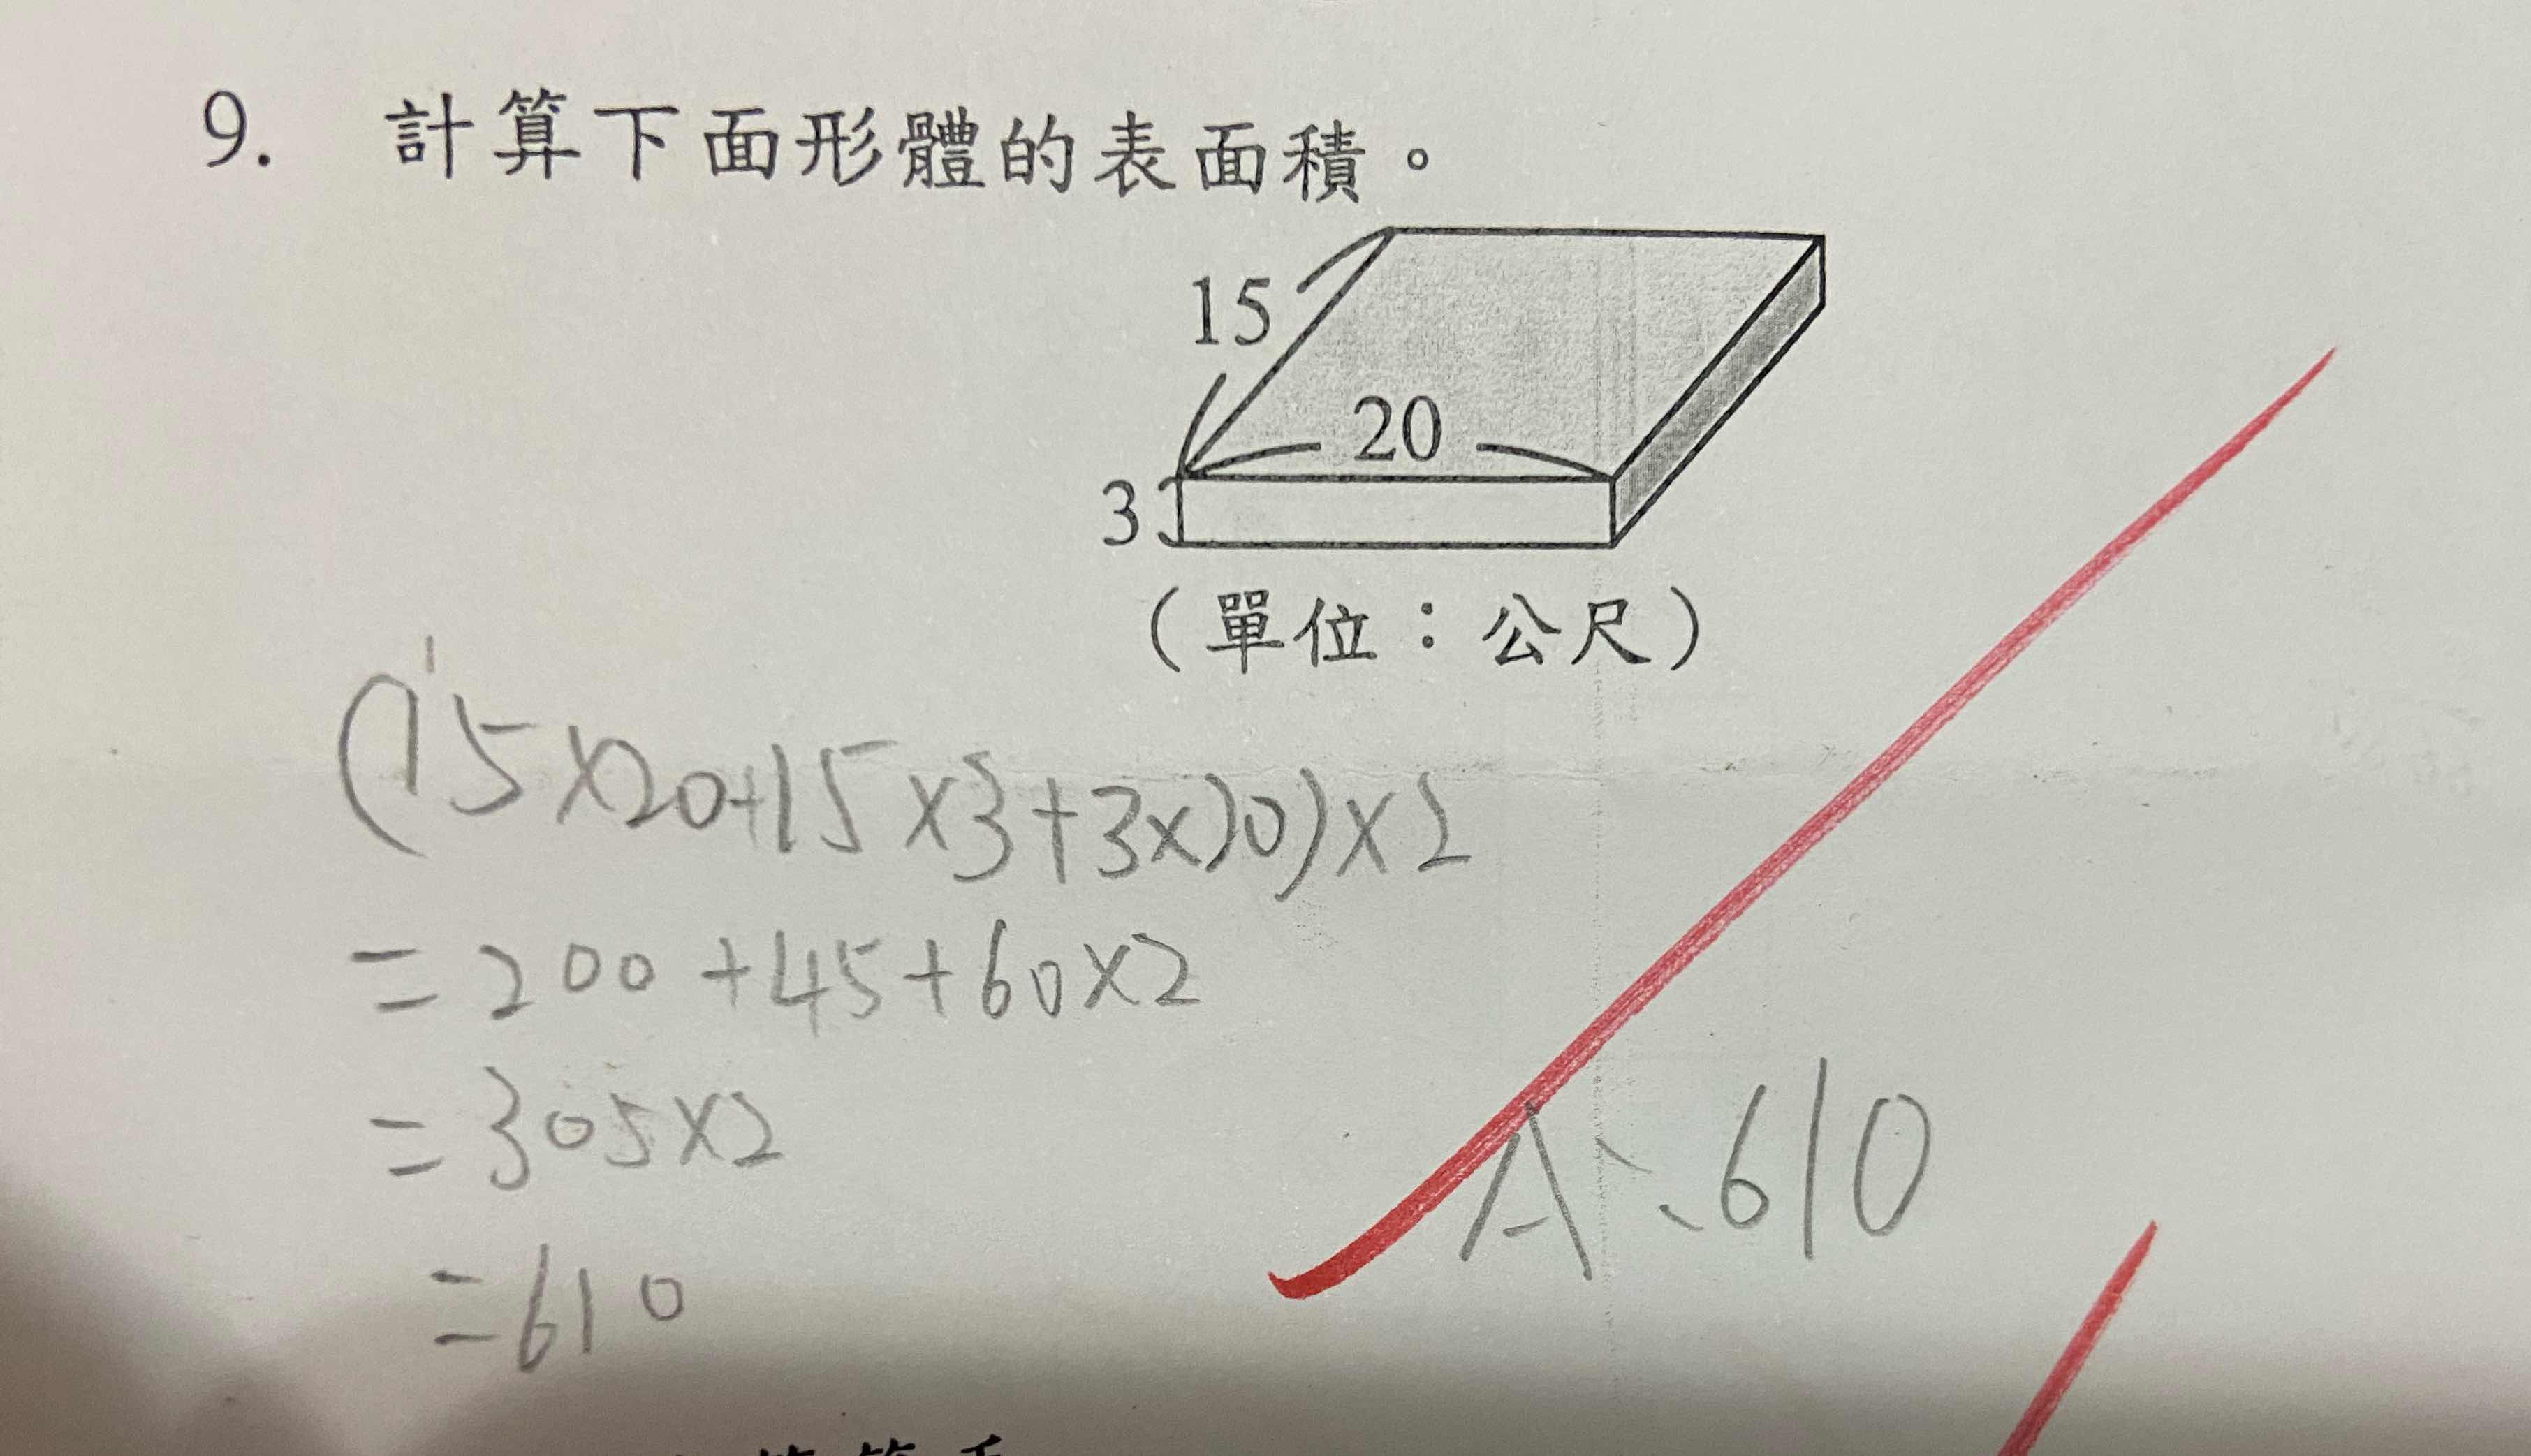 9. 計算下面形體的表面積。
15
20
3
（單位：公尺）
(15×20+15×3+3×20)×2
=200+45+60×2
=305×2
=610
A:610